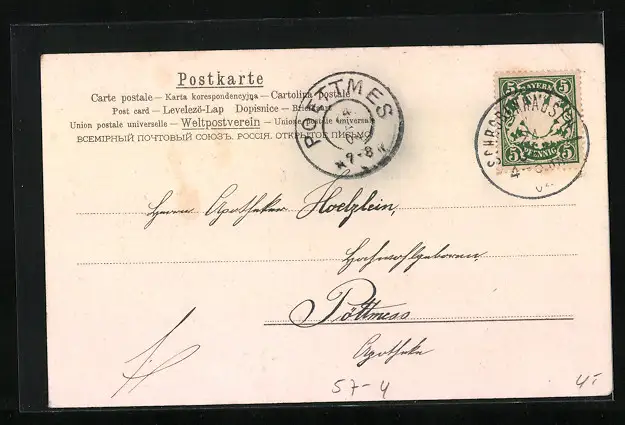 Postkarte
Carte postale — Karta korespondencyjna — Cartolina postale
Post card — Levelező-Lap Dopisnice — Briefkaart
Union postale universelle — Weltpostverein — Unione postale universale
ВСЕМІРНЫЙ ПОЧТОВЫЙ СОЮЗЪ. РОССІЯ. ОТКРЫТОЕ ПИСЬМО
PÖTTMES
7-8
BAYERN
5 5
5 PFENNIG 5
SCHROBENHAUSEN
Herrn Apotheker Hoelzlein,
Hochwohlgeboren,
Pöttmess
Apotheke
57-4